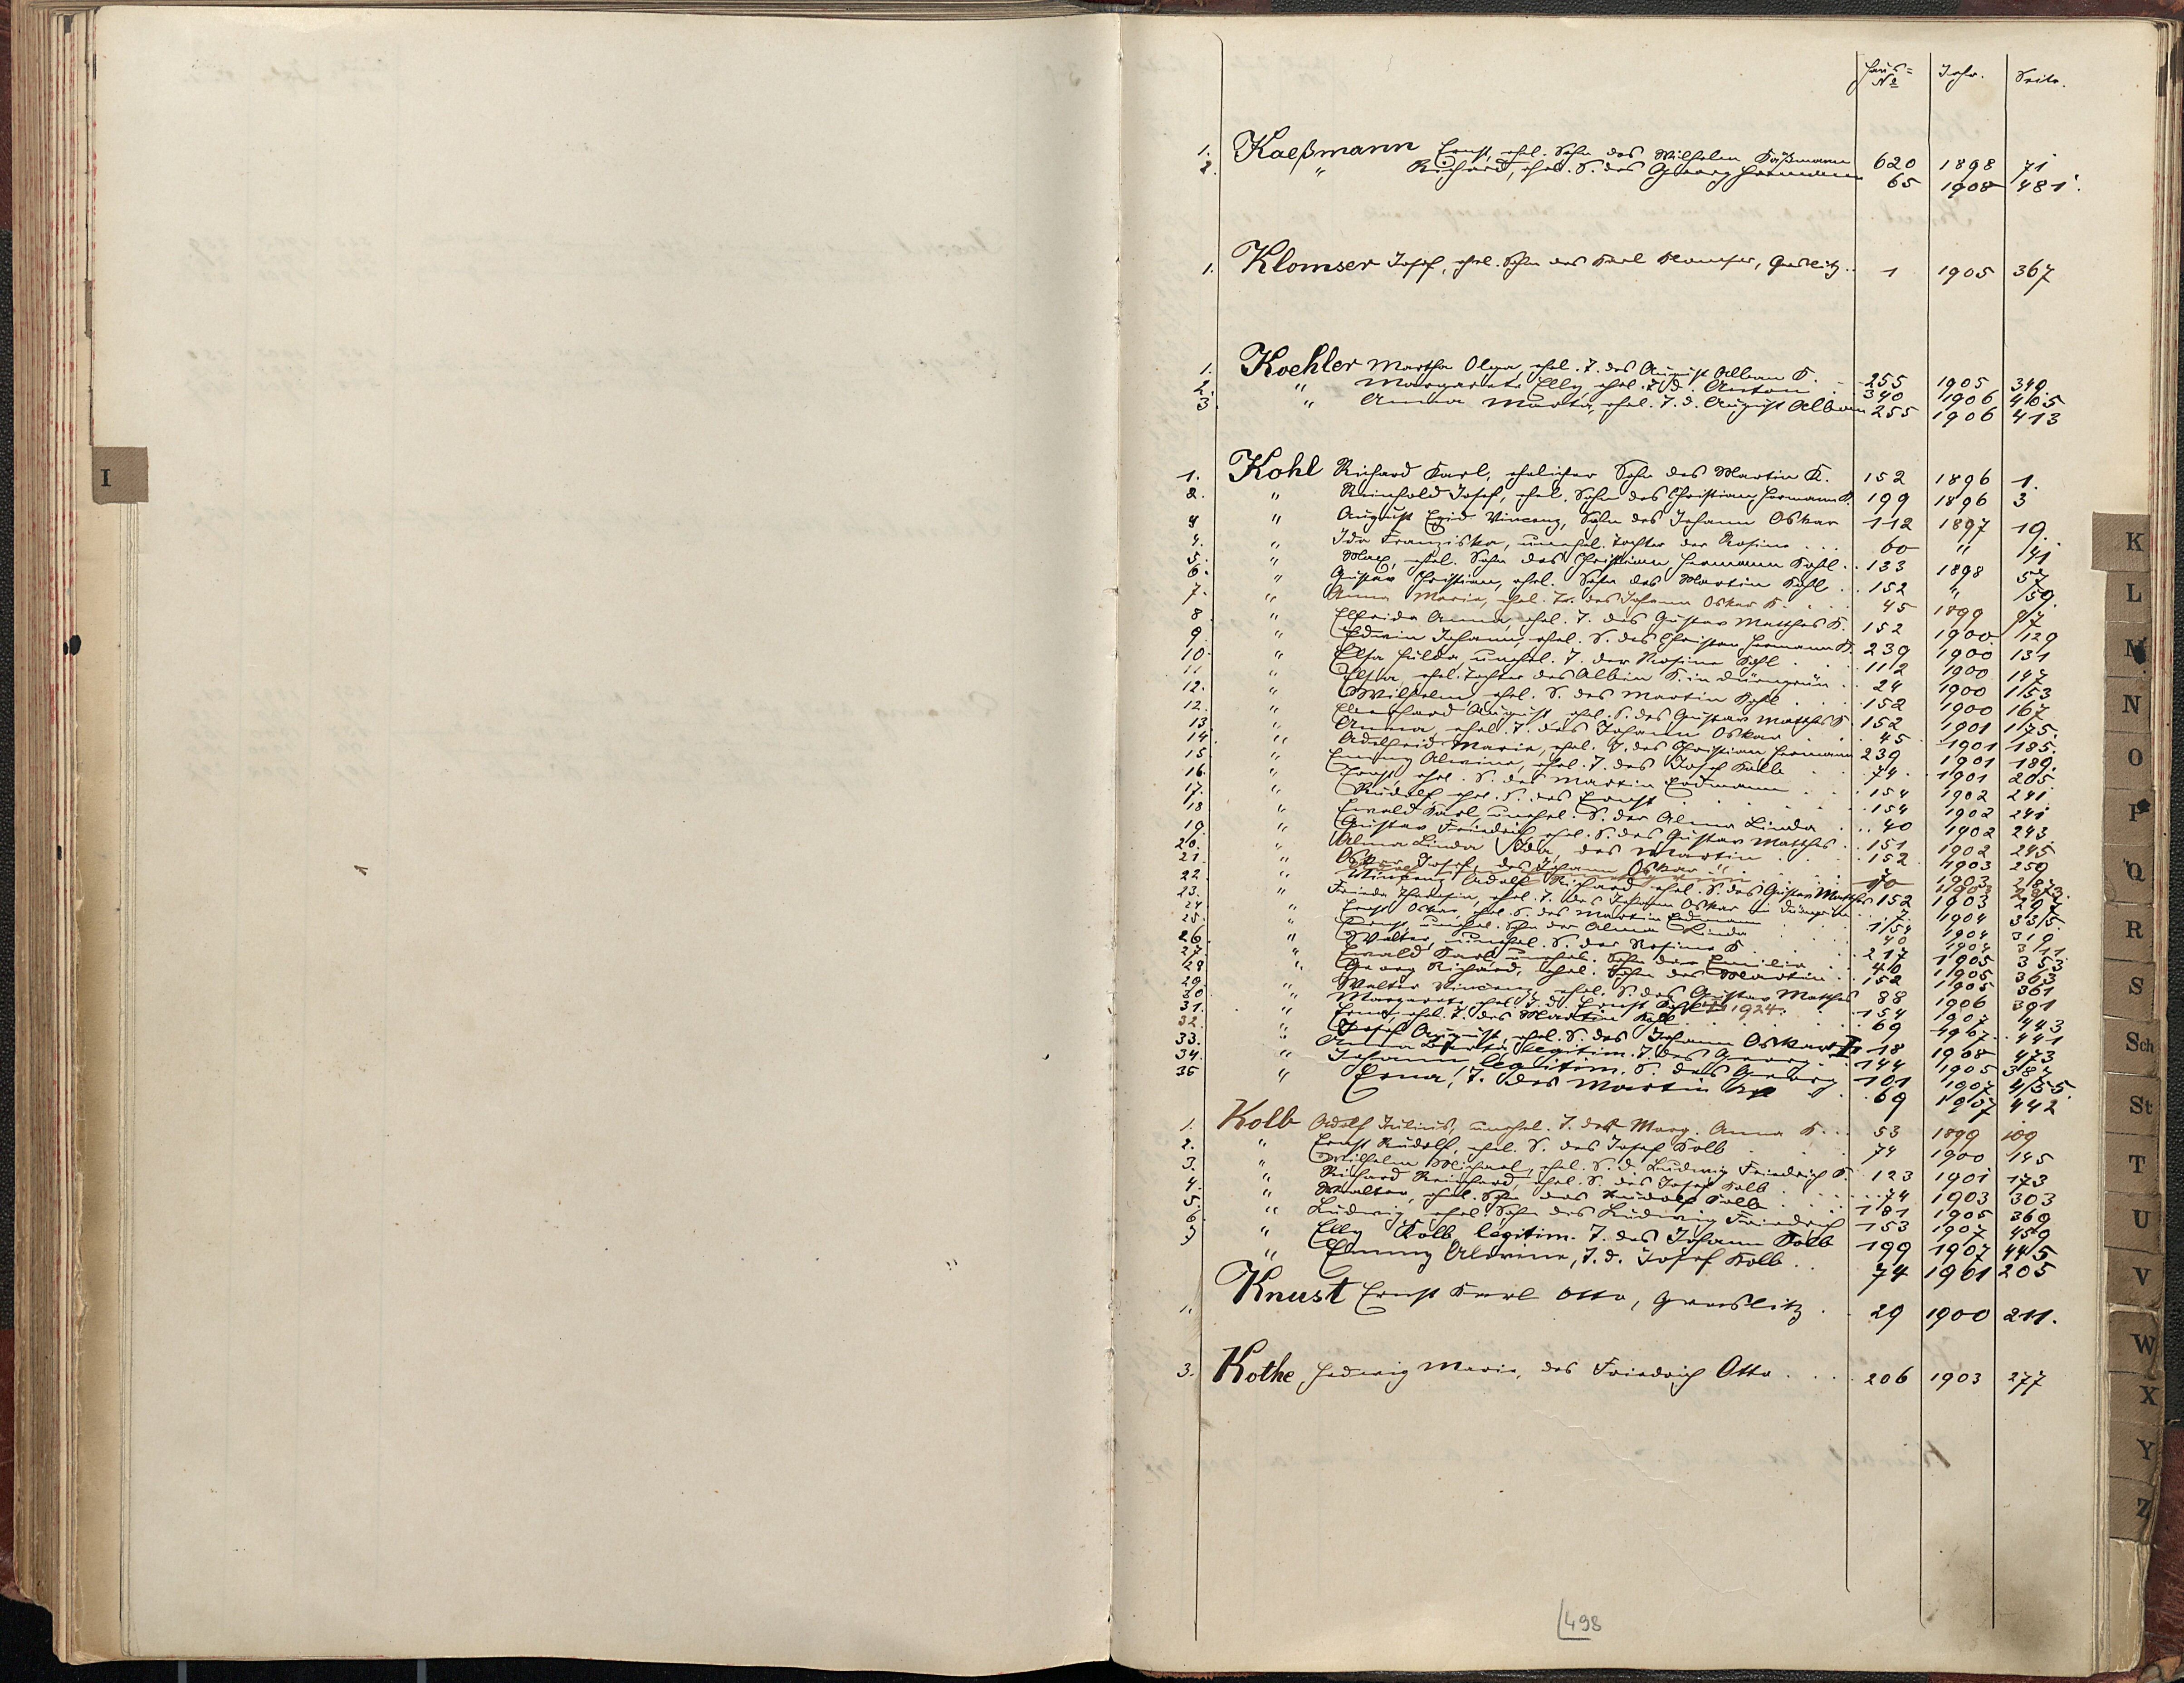 I
Haus= Jahr. Seite.
No
1. Kaeßmann Ernst, ehel. Sohn des Wilhelm Käßmann 620 1898 71
2. " Richard, ehel. S. des Georg Hermann 65 1908 481.
1. Klomser Josef, ehel. Sohn des Karl Klomser, Graslitz. 1 1905 367
1. Koehler Martha Olga, ehel. T. des August Alban K. 255 1905 349
2. " Margarete Elly, ehel. T. d. Anton 340 1906 405
3. " Anna Marta, ehel. T. d. August Alban 255 1906 413
1. Kohl Richard Karl, ehelicher Sohn des Martin K. 152 1896 1.
2. " Reinhold Josef, ehel. Sohn des Christian Hermann K. 199 1896 3
" August Egid Vincenz, Sohn des Johann Oskar 112 1897 19.
4. " Ida Franziska, unehel. Tochter der Rosina ... 60 " 41
5. " Max, ehel. Sohn des Christian Hermann Kohl .. 133 1898 57
6. " Gustav Christian, ehel. Sohn des Martin Kohl .. 152 " 59.
7. " Anna Maria, ehel. Tr. des Johann Oskar K. ... 45 1899 97
8 " Elfrida Anna, ehel. T. des Gustav Matthes K. 152 1900. 129
9. " Edwin Johann, ehel. S. des Christian Hermann K. 239 1900 131
10. " Elsa Hulda, unehel. T. der Rosina Kohl 112 1900 147
11. " Elsa, ehel. Tochter des Albin K. in Dürngrün .. 24 1900 153
12. " Wilhelm, ehel. S. des Martin Kohl 152 1900 167
12. " Eberhard August, ehel. S. des Gustav Matthes K. 152 1901 175.
13. " Anna, ehel. T. des Johann Oskar 45 1901 185.
14. " Adelheid Maria, ehel. T. des Christian Hermann 239 1901 189.
15. " Emmy Alwine, ehel. T. des Josef Kolb 74. 1901 205
16. " Ernst, ehel. S. des Martin Erdmann 154 1902 241
17. " Rudolf, ehel. S. des Ernst 154 1902 241
18 " Ewald Karl, unehel. S. der Alma Linda .. 40 1902 243
19. " Gustav Friedrich, ehel. S. des Gustav Matthes . 151 1902 245
20. " Alma Linda Ida, des Martin 152 1903 259
21. " Oskar Josef, des Johann Oskar 1903
22. " Vinzenz Adolf Richard, ehel. S. des Gustav Matthes 152 1903 297
23. " Frieda Theresia, ehel. T. des Johann Oskar in Dürngrün .. 7. 1904 335.
24. " Ernst Oskar, ehel. S. des Martin Erdmann 154 1904 319
25. " Ernst, unehel. Sohn der Alma Linda 40 1904 311
26. " Walter, unehel. S. der Rosina K 217 1905 353
27. " Ewald Karl, unehel. Sohn der Emilia 40 1905 363
28 " Georg Richard, ehel. Sohn des Martin 152 1905 361
29. " Walter Vincenz, ehel. S. des Gustav Matthes 88 1906 391
30 " Margarete, ehel. T. d. Ernst Kohl † 1924. 154 1907 443
31. " Erna, ehel. T. des Martin Kohl 69 1907. 441
32. " Josef August, ehel. S. des Johann Oskar K 18 1908 473
33. Anna Berta, legitim. T. des Georg 144 1905 387
34. " Johann, legitim. S. des Georg 101 1907 455.
35 " Erna, T. des Martin K 69 1907 442
1. Kolb Adolf Julius, unehel. T. der Marg. Anna K... 53 1899 109
2. " Ernst Rudolf, ehel. S. des Josef Kolb 74 1900 145
3. " Wilhelm Michael, ehel. S. d. Ludwig Friedrich K. 123 1901 173
" Richard Reinhard, ehel. S. des Josef Kolb 74 1903 303
4. " Walter, ehel. Sohn des Rudolf Kolb 181 1905 369
5. " Ludwig, ehel. Sohn des Ludwig Friedrich 153 1907 459
6. " Elly Kolb, legitim. T. des Johann Kolb 199 1907 445
" Emmy Alwine, T. d. Josef Kolb .. 74 1901 205
1. Knust Ernst Karl Otto, Graslitz . 29 1900 211.
3. Kothe, Hedwig Maria, des Friedrich Otto .... 206 1903 277
498
K
L
M
N
O
P
Q
R
S
Sch
St
T
U
V
W
X
Y
Z